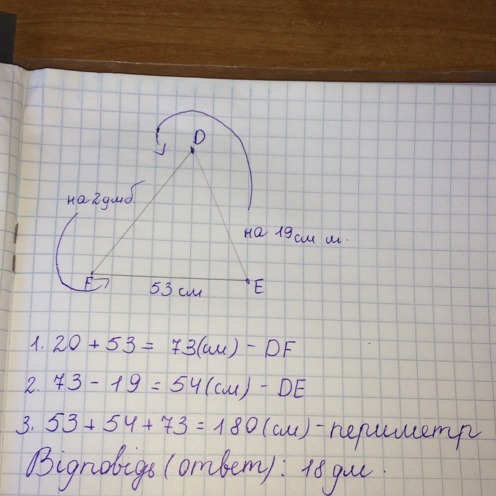 D
на 2дм б.
на 19 см м.
F
53 см
E
1. 20 + 53 = 73(см) - DF
2. 73 - 19 = 54(см) - DE
3. 53 + 54 + 73 = 180(см) - периметр
Відповідь (ответ): 18 дм.